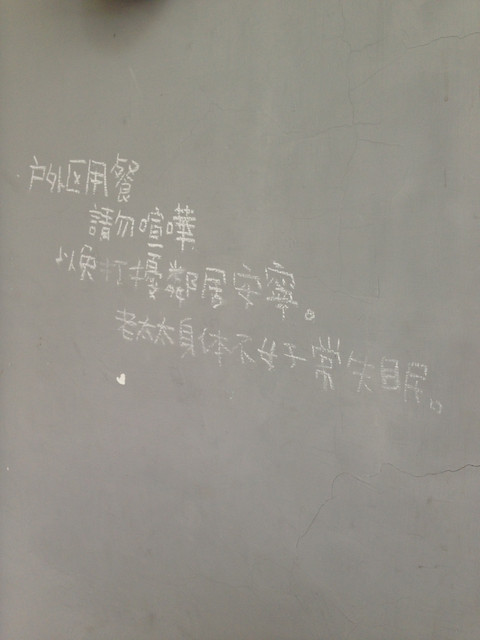 户外区用餐
請勿喧嘩
以免打擾鄰居安寧。
老太太身体不好常失眠。